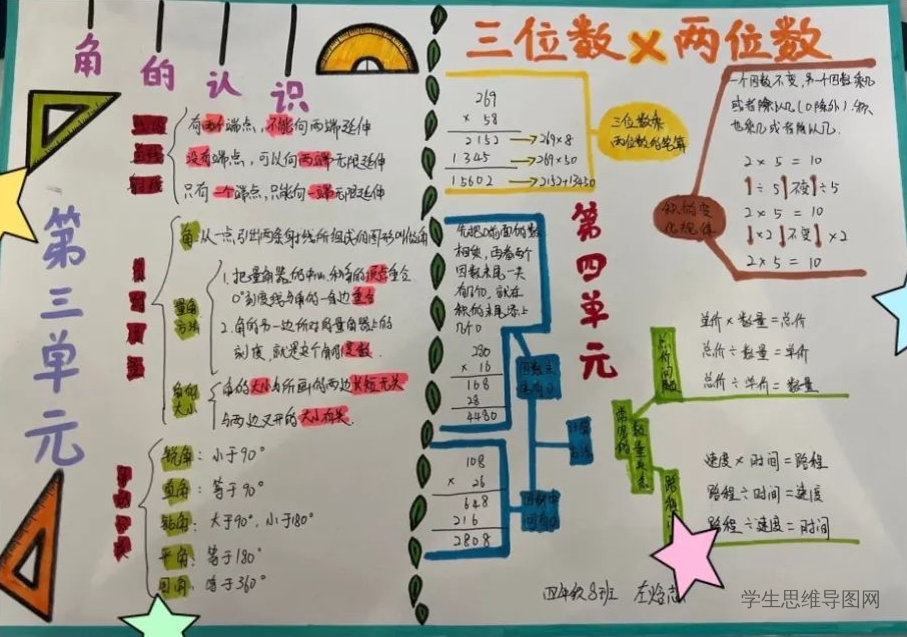 角的认识
第三单元
有两个端点，不能向两端延伸
没有端点，可以向两端无限延伸
只有一个端点，只能向一端无限延伸
角 从一点引出两条射线所组成的图形叫做角
量角方法
1.把量角器的中心和角的顶点重合
0°刻度线与角的一条边重合
2.角的另一边所对的量角器上的
刻度，就是这个角的度数.
角的大小
角的大小与所画的两边长短无关
与两边叉开的大小有关.
锐角：小于90°
直角：等于90°
钝角：大于90°，小于180°
平角：等于180°
周角：等于360°
三位数×两位数
第四单元
269
× 58
2152→269×8
1345→269×50
15602→2152+13450
三位数乘
两位数的笔算
一个因数不变，另一个因数乘几
或者除以几（0除外）.积
也乘几或者除以几.
2×5=10
÷5 不变 ÷5
2×5=10
×2 不变 ×2
2×5=10
积的变
化规律
先把0前面的数
相乘，再看两个
因数末尾一共
有几个0，就在
积的末尾添上
几个0
280
× 16
168
28
4480
因数末
尾有0
108
× 26
648
216
2808
因数中
间有0
常见的
数量关系
总价问题
单价×数量=总价
总价÷数量=单价
总价÷单价=数量
速度×时间=路程
路程÷时间=速度
路程÷速度=时间
四年级8班
学生思维导图网